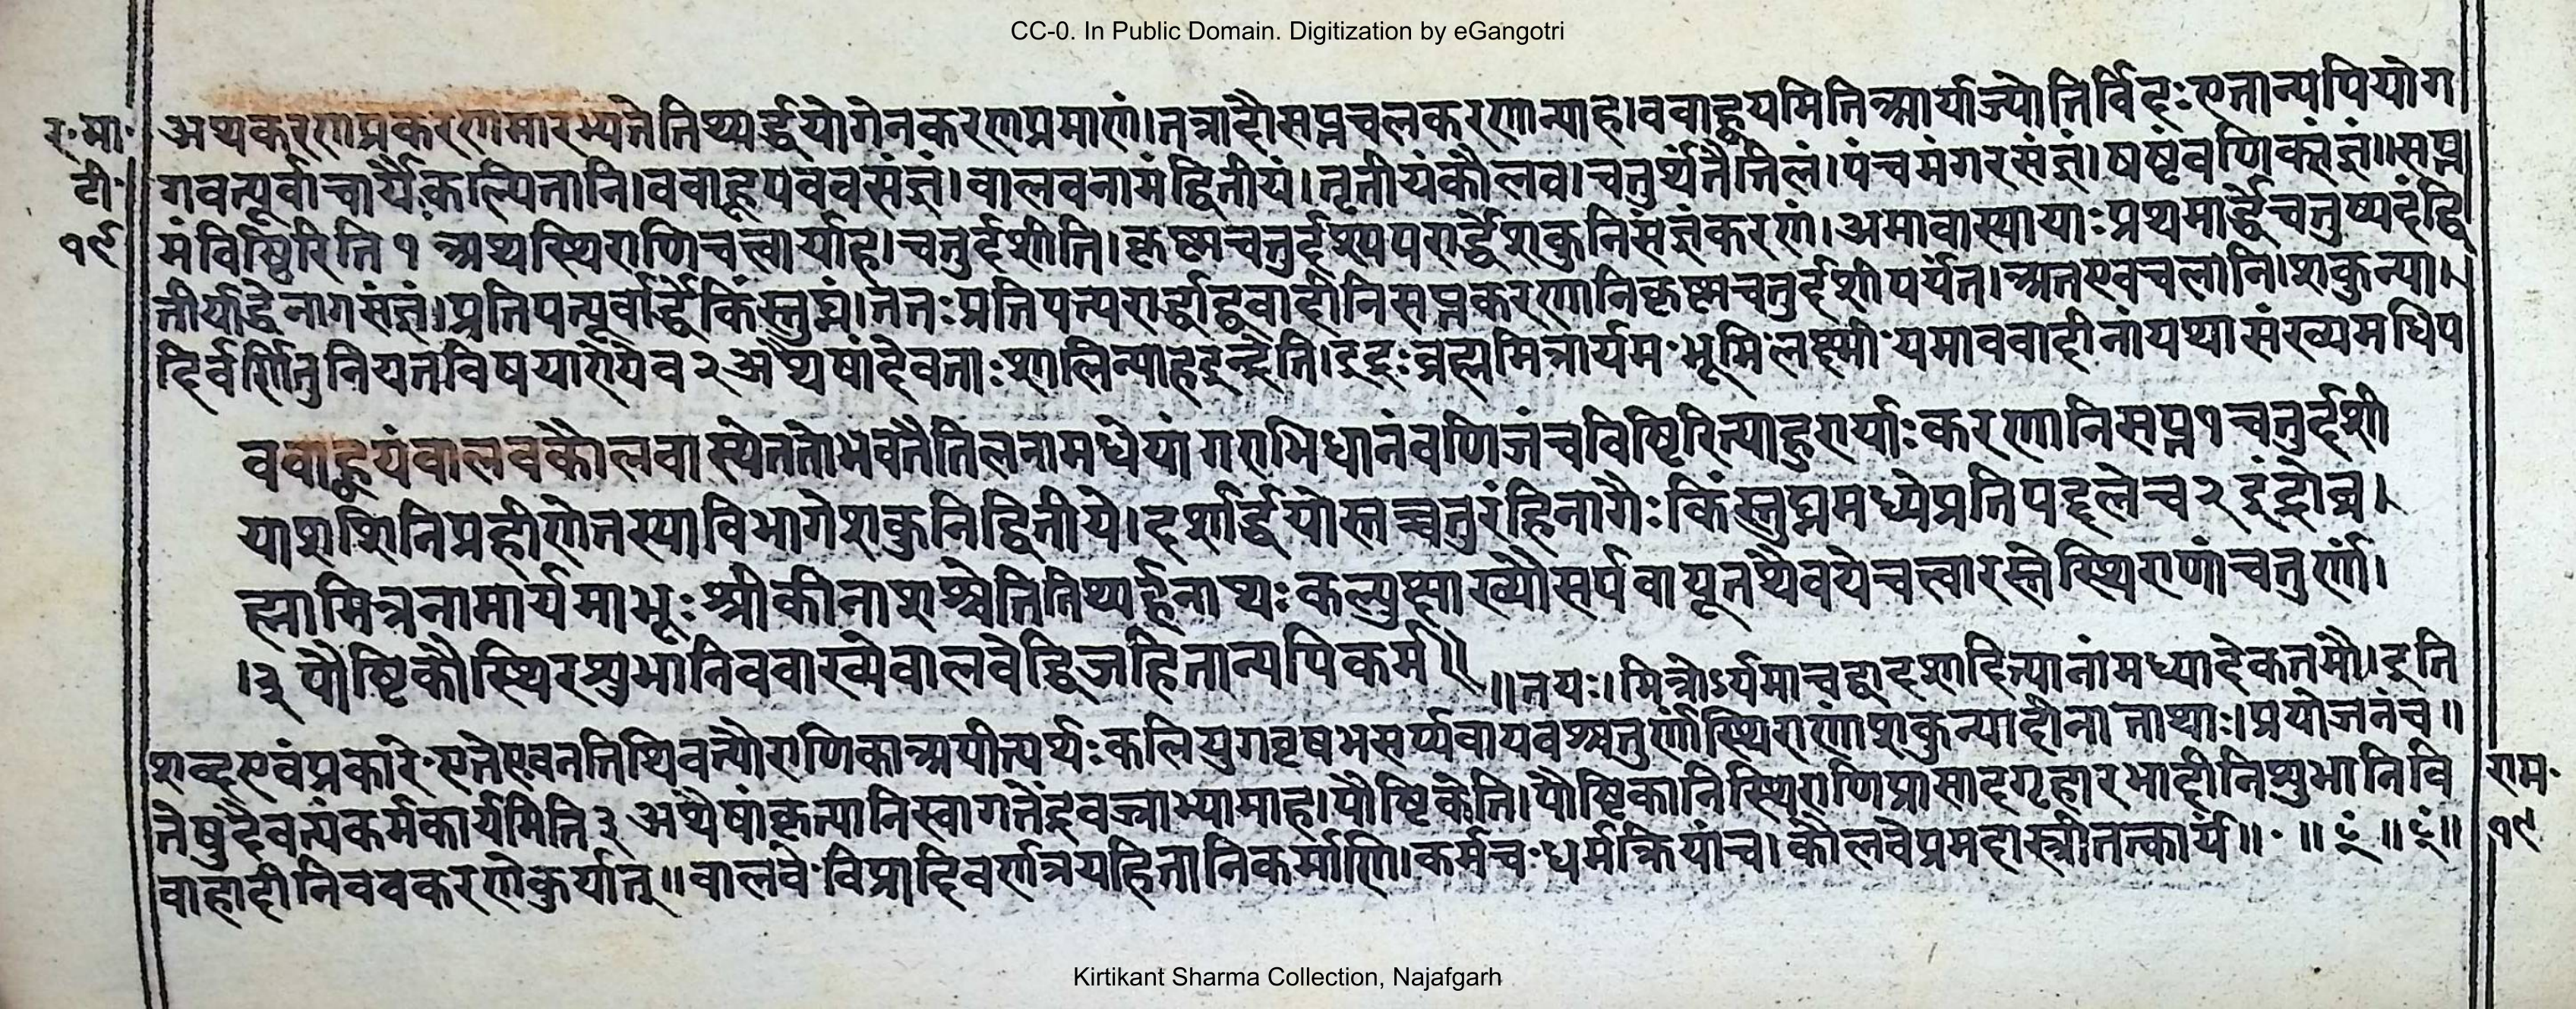 CC-0. In Public Domain. Digitization by eGangotri
र·मा· अथकरणप्रकरणमारभ्यतेतिथ्यर्द्धयोगेनकरणप्रमाणं।तत्रादौसप्तचलकरणान्याह।ववाह्वयमितिआर्याज्योतिर्विदःएतान्यपियोग
टी· गवत्पूर्वाचार्यैःकल्पितानि।ववाहूपववसंज्ञं।वालवनामंद्वितीयं।तृतीयंकौलव।चतुर्थंतैतिलं।पंचमंगरसंज्ञं।षष्टंवणिक्संज्ञं॥सप्त
१९ मंविष्टिरिति१ अथस्थिराणिचत्वार्याह।चतुर्दशीति।कृष्णचतुर्दश्यपरार्द्धेशकुनिसंज्ञंकरणं।अमावास्यायाःप्रथमार्द्धेचतुष्पदंद्वि
तीर्याद्धेनागसंज्ञं।प्रतिपत्पूर्वार्द्धेकिंस्तुघ्नं।ततःप्रतिपत्परार्द्धाद्ववादीनिसप्तकरणानिकृष्णचतुर्दशीपर्यंत।अतएवचलानि।शकुन्या।
दिर्वर्णितुनियतविषयाण्येव२अथैषांदेवताःशालिन्याहइन्द्रेति।इंद्रःब्रह्ममित्रार्यम·भूमि·लक्ष्मी·यमाववादीनांयथासंख्यमधिप
ववाह्वयंवालवकौलवास्येततोभवेतैतिलनामधेयां गराभिधानंवणिजंचविष्टिरित्याहुरार्याःकरणानिसप्त१चतुर्दशी
याशशिनिप्रहीणेतस्याविभागेशकुनिद्वितीये।दर्शार्द्धयोस्तच्चतुरंहिनागैःकिंस्तुघ्नमध्येप्रतिपद्दलेच२इंद्रोब्र।
ह्मामित्रनामार्यमाभूःश्रीकीनाशश्चेतितिथ्यर्द्धनाथःकल्युक्षाख्यौसर्पवायूतथैवयेचत्वारस्तेस्थिराणांचतुर्णां।
।३ पौष्टिकौस्थिरशुभानिववाख्येवालवेद्विजहितान्यपिकर्म॥
॥तयः।मित्रोऽर्यमाचद्वादशादित्यानांमध्यादेकतमौ।इति
शब्दएवंप्रकारे·एतेएवनतिथिवत्पौराणिकाअपीत्यर्थःकलियुगवृषभसर्प्पवायवश्चतुर्णांस्थिराणांशकुन्यादीनानाथाः।प्रयोजनंच॥
तेषुदैवत्यंकर्मकार्यमिति३ अथैषांकृत्यानिस्वागतेंद्रवज्राभ्यामाह।पौष्टिकेति।पौष्टिकानिस्थिराणिप्रासादगृहारभादीनिशुभानिवि
वाहादीनिववकरणेकुर्यात्॥वालवे·विप्रादिवर्णत्रयहितानिकर्माणि।कर्मच·धर्मक्रियांच।कौलवेप्रमदास्त्रीतत्कार्यं॥·॥
राम·
१९
Kirtikant Sharma Collection, Najafgarh